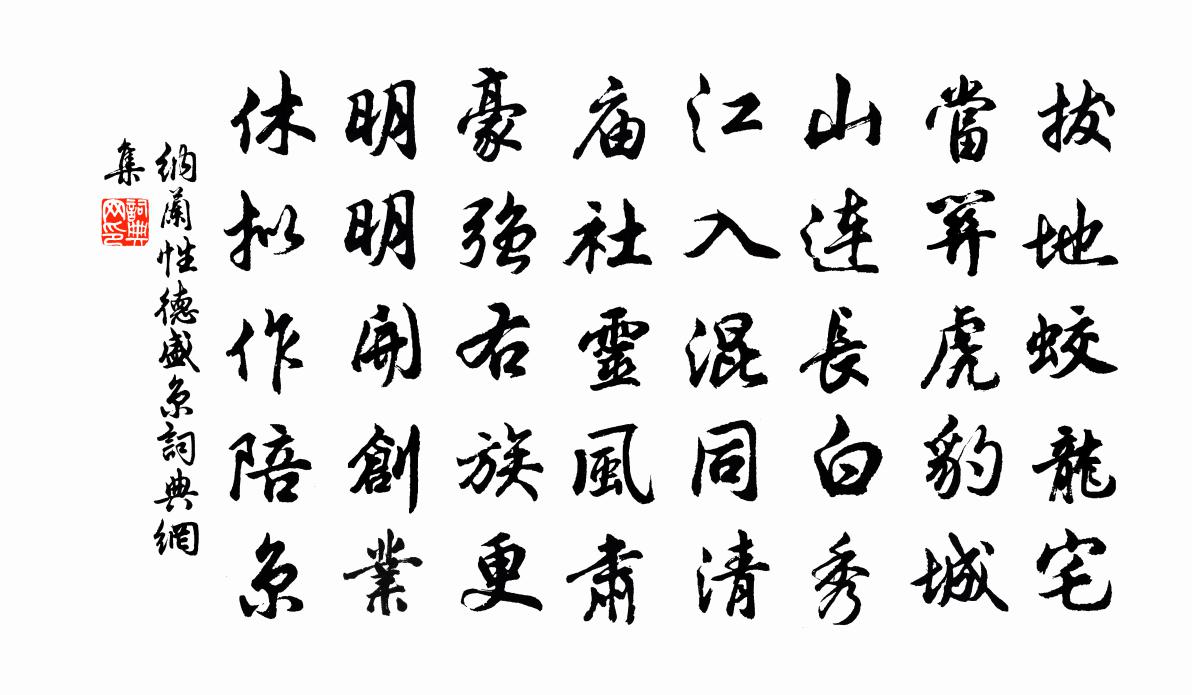 拔地蛟龍宅
當關虎豹城
山連長白秀
江入混同清
庙社靈風肅
豪强右族更
明明開創業
休拟作陪京
納蘭性德盛京詞典網
集
詞典网印